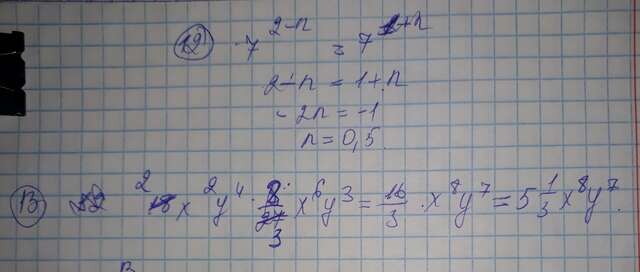 12 7^{2-n} = 7^{1+n}
2-n = 1+n
-2n = -1
n = 0,5
13 2 18 x^2 y^4 · 8/27 3 x^6 y^3 = 16/3 · x^8 y^7 = 5 1/3 x^8 y^7.